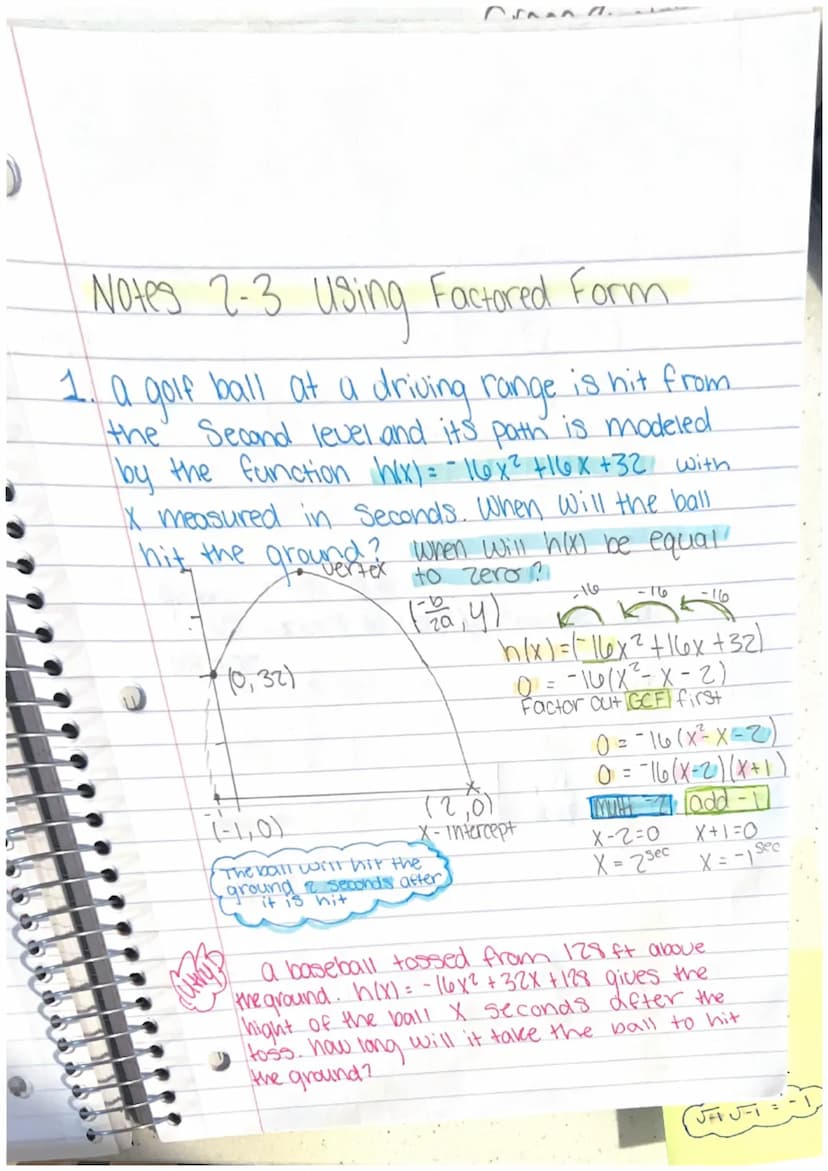 Notes 2-3 Using Factored Form
1. a golf ball at a driving range is hit from
the Second level and its path is modeled
by the function h(x) = -16x² +16x +32 with
X measured in Seconds. When will the ball
hit the ground? When will h(x) be equal
to zero?
vertex
(-b/2a, y)
-16 -16 -16
h(x)=(-16x²+16x+32)
(0,32)
0 = -16(x²-x-2)
Factor out GCF first
0 = -16(x²-x-2)
0 = -16(x-2)(x+1)
multi -2 add -1
(-1,0)
(2,0)
x-intercept
x-2=0 x+1=0
x=2 sec x=-1 sec
The ball will hit the
ground 2 seconds after
it is hit
a baseball tossed from 128 ft above
the ground. h(x) = -16x² +32x +128 gives the
hight of the ball X seconds after the
toss. how long will it take the ball to hit
the ground?
√-1 √-1 = -1